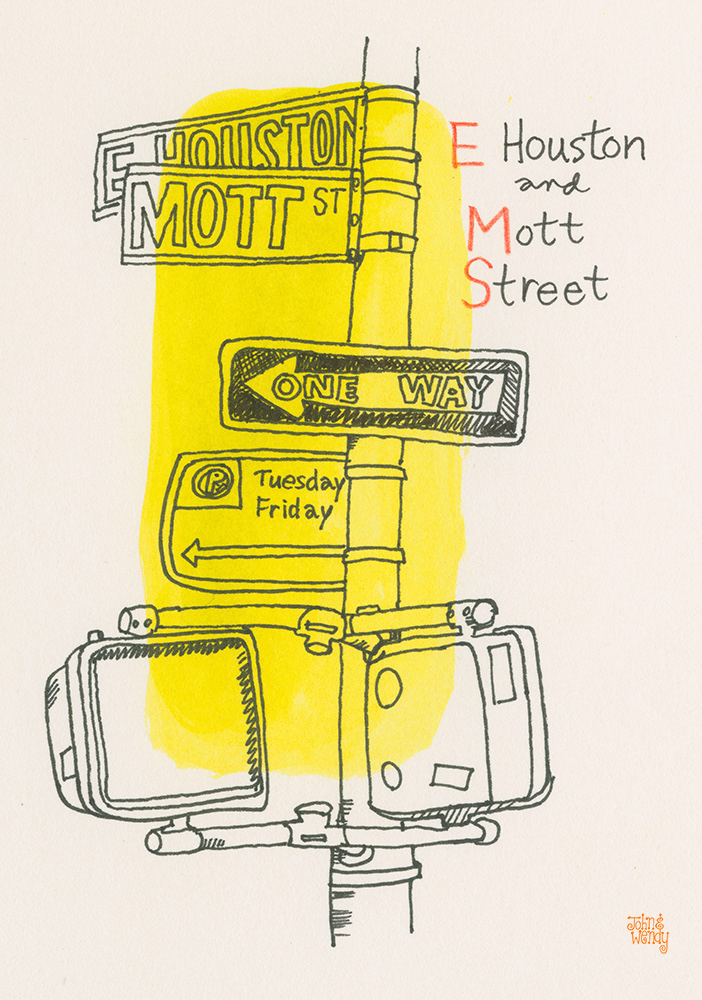 E HOUSTON
MOTT ST
E Houston
and
Mott
Street
ONE WAY
P
Tuesday
Friday
John &
Wendy